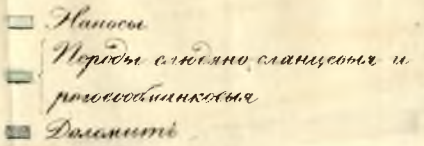 Наносы
Породы слюдяно сланцевыя и
роговообманковыя
Доломитъ